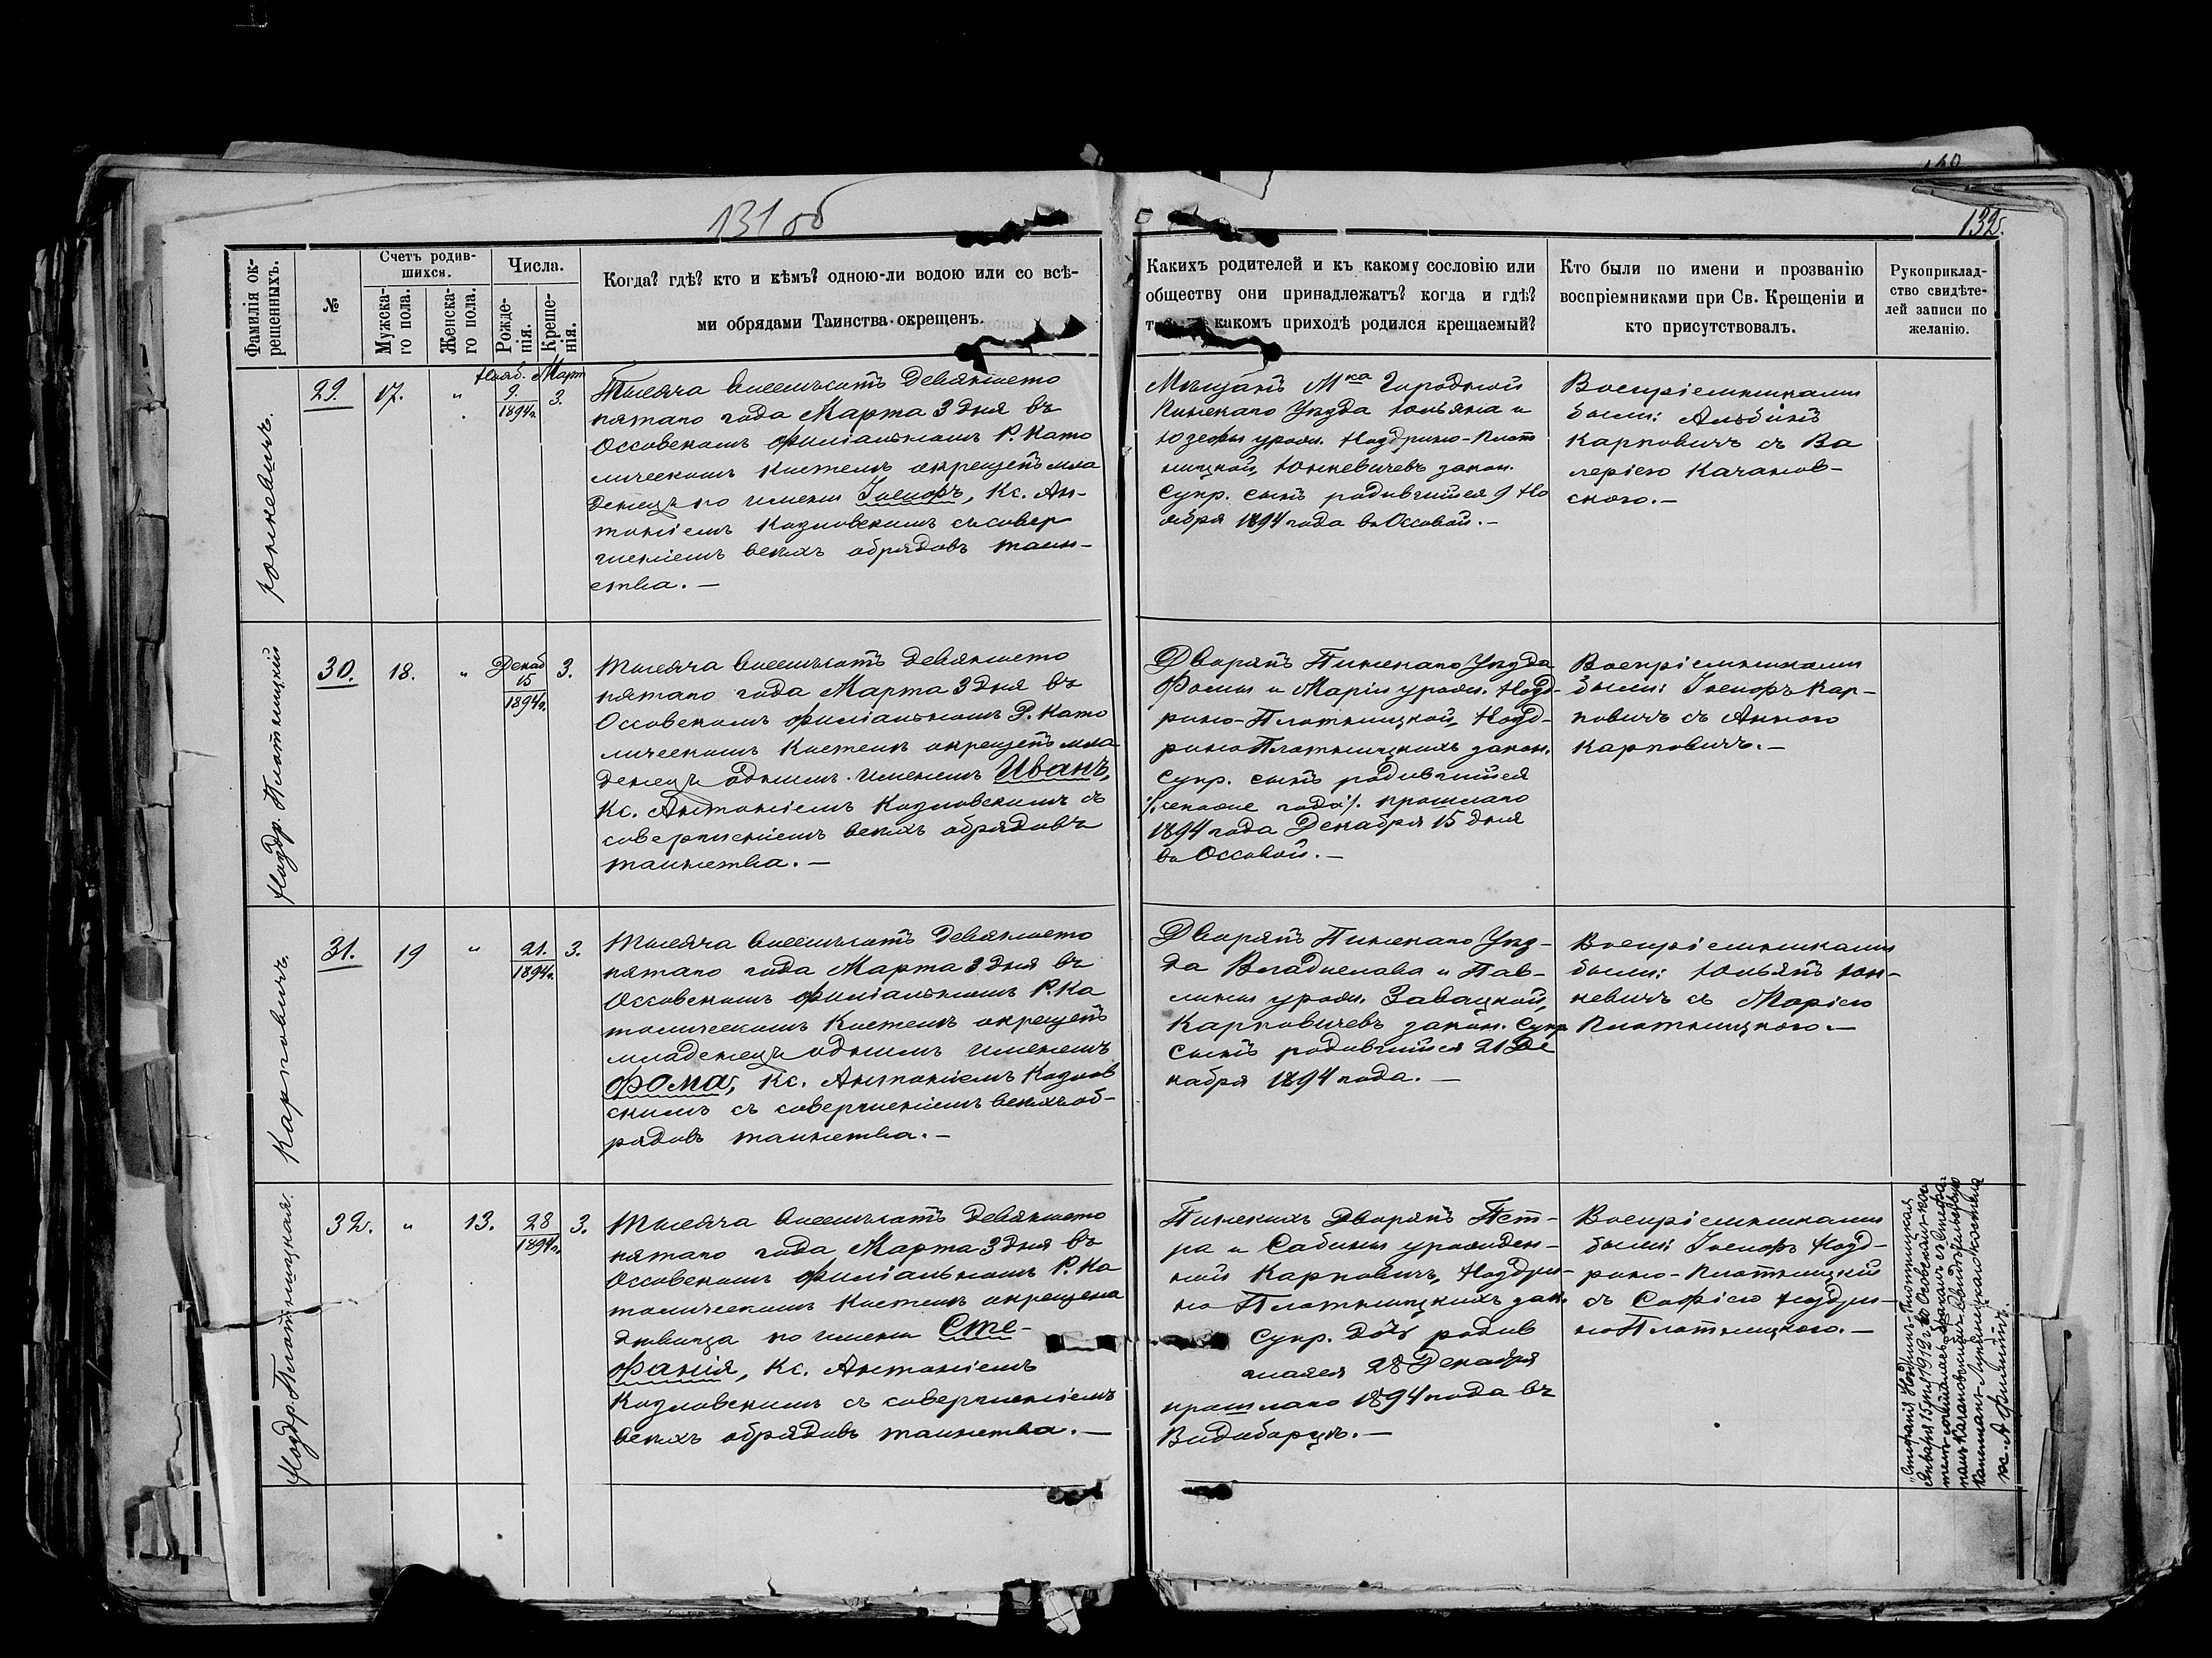 131 об
132.
Фамилія ок-
рещенныхъ.
№
Счетъ родив-
шихся.
Мужска-
го пола.
Женска-
го пола.
Числа.
Рожде-
нія.
Креще-
нія.
Когда? гдѣ? кто и кѣмъ? одною-ли водою или со всѣ-
ми обрядами Таинства окрещенъ.
Какихъ родителей и къ какому сословію или
обществу они принадлежатъ? когда и гдѣ?
какомъ приходѣ родился крещаемый?
Кто были по имени и прозванію
воспріемниками при Св. Крещеніи и
кто присутствовалъ.
Рукоприклад-
ство свидѣте-
лей записи по
желанію.
Юнкевичъ.
29.
17.
"
Нояб.
9.
1894г.
Март
3.
Тысяча восемьсотъ девяносто
пятаго года Марта 3 дня въ
Оссовскомъ филіальномъ Р. Като
лическомъ Костелѣ окрещенъ мла
денецъ по имени Іосифъ, Кс. Ан-
тоніемъ Козловскимъ съ совер
шеніемъ всѣхъ обрядовъ таин-
ства. —
Мѣщанъ Мка Городной
Пинскаго Уѣзда Юльяна и
Юзефы урож. Ноздрино-Плот
ницкой, Юнкевичевъ закон.
Супр. сынъ родившійся 9 Но
ября 1894 года въ Оссовой. —
Воспріемниками
были: Альбинъ
Карповичъ съ Ва
леріею Качанов-
скою. —
Ноздр. Плотницкій
30.
18.
"
Декаб
15
1894г.
3.
Тысяча восемьсотъ девяносто
пятаго года Марта 3 дня въ
Оссовскомъ филіальномъ Р. Като
лическомъ Костелѣ окрещенъ мла
денецъ однимъ именемъ Иванъ,
Кс. Антоніемъ Козловскимъ съ
совершеніемъ всѣхъ обрядовъ
таинства. —
Дворянъ Пинскаго Уѣзда
Фомы и Маріи урож. Нозд-
рино-Плотницкой, Нозд-
рино Плотницкихъ закон.
Супр. сынъ родившійся
года ⁒. прошлаго
1894 года Декабря 15 дня
въ Оссовой. —
Воспріемниками
были: Іосифъ Кар-
повичъ съ Анною
Карповичъ. —
Карповичъ.
31.
19
"
21.
1894г.
3.
Тысяча восемьсотъ девяносто
пятаго года Марта 3 дня въ
Оссовскомъ филіальномъ Р. Ка
толическомъ Костелѣ окрещенъ
младенецъ однимъ именемъ
Фома, Кс. Антоніемъ Козлов
скимъ съ совершеніемъ всѣхъ об-
рядовъ таинства. —
Дворянъ Пинскаго Уѣз-
да Владислава и Пав-
лины урож. Завацкой,
Карповичевъ закон. Супр
Сынъ родившійся 21 Де
кабря 1894 года. —
Воспріемниками
были: Юльянъ Юн-
кевичъ съ Маріею
Плотницкою. —
Ноздр. Плотницкая.
32.
"
13.
28
1894г.
3.
Тысяча восемьсотъ девяносто
пятаго года Марта 3 дня въ
Оссовскомъ Филіальномъ Р. Ка
толическомъ Костелѣ окрещена
дѣвица по имени Сте-
фанія, Кс. Антоніемъ
Козловскимъ съ совершеніемъ
всѣхъ обрядовъ таинства. —
Пинскихъ Дворянъ Пет-
ра и Сабины урожден-
ной Карповичъ, Ноздри-
но Плотницкихъ зак.
Супр. дочь родив
шаяся 28 Декабря
прошлаго 1894 года въ
Видиборцѣ. —
Воспріемниками
были: Іосифъ Нозд-
рино-Плотницкій
съ Софіею Ноздри-
но Плотницкою. —
Стефанія Плотницкая
Января 15 дня 1912 г. въ Оссовскомъ ко-
бракомъ съ
Качановскимъ
Лунинецкаго костела
кс. А